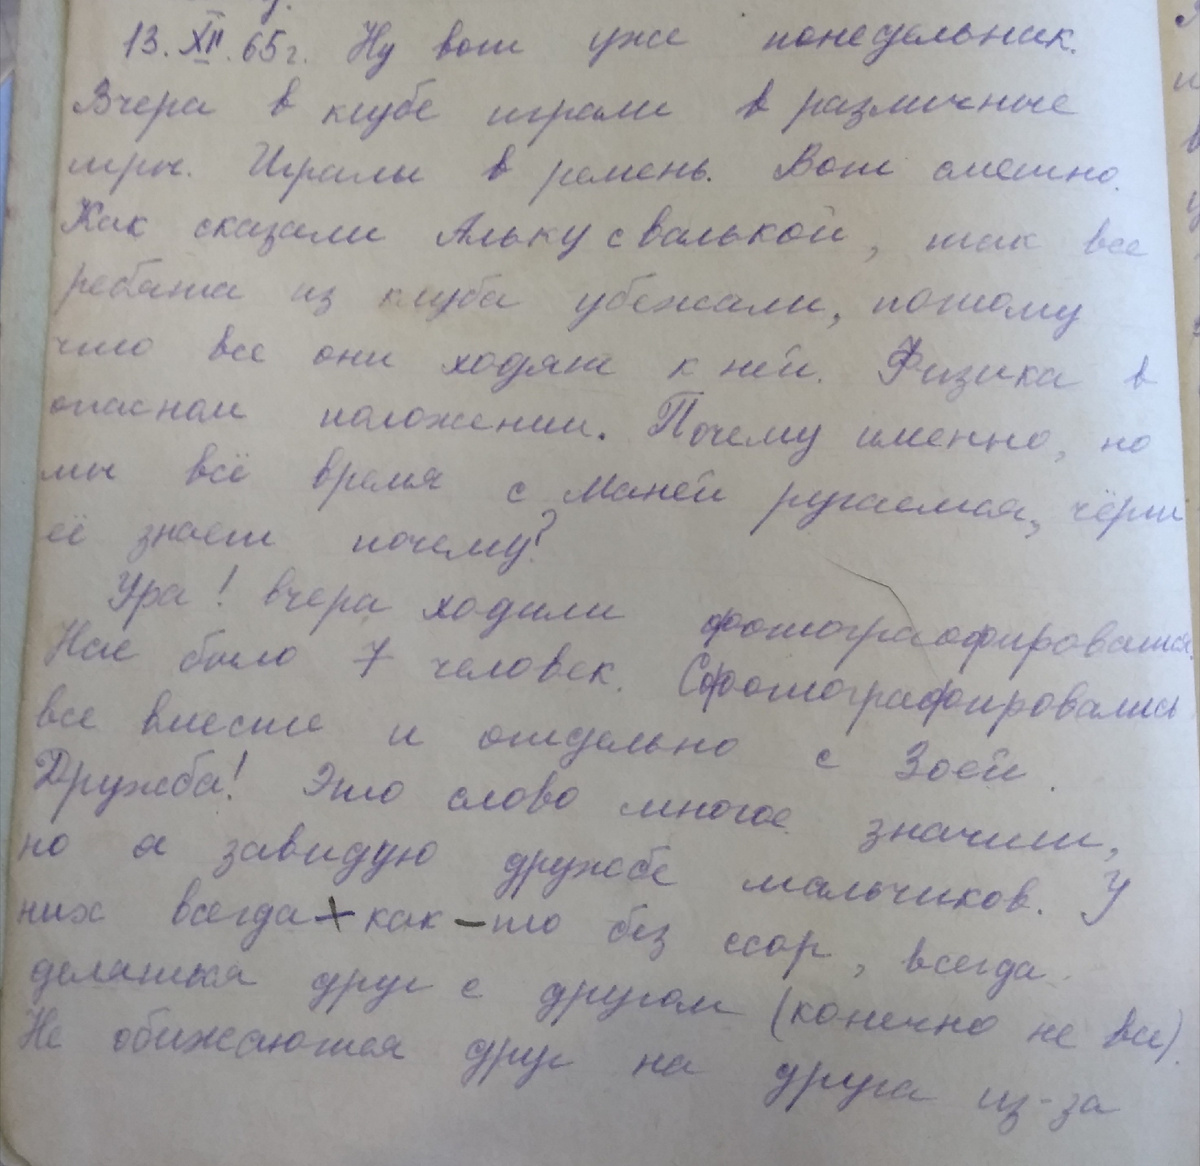 13.XII.65г. Ну вот уже понедельник.
Вчера в клубе играли в различные
игры. Играли в ремень. Вот смешно.
Как сказали Альку с Валькой, так все
ребята из клуба убежали, потому
что все они ходят к ней. Физика в
опасном положении. Почему именно, но
мы всё время с Маней ругаемся, чёрт
её знает почему?
Ура! вчера ходили фотографировались.
Нас было 7 человек. Сфотографировались
все вместе и отдельно с Зоей.
Дружба! Это слово многое значит,
но я завидую дружбе мальчиков. У
них всегда + как-то без ссор, всегда
делятся друг с другом (конечно не все).
Не обижаются друг на друга из-за